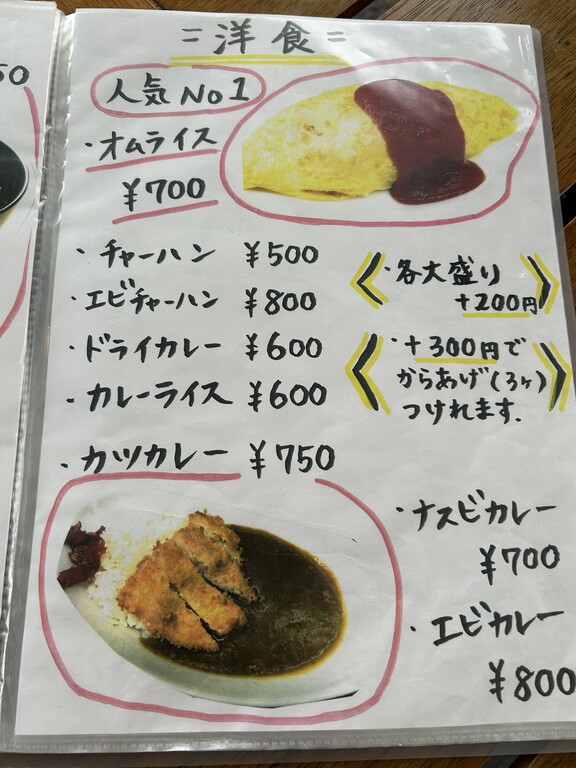 = 洋食 =
人気 No1
・オムライス
¥700
・チャーハン ¥500
・エビチャーハン ¥800
・ドライカレー ¥600
・カレーライス ¥600
・カツカレー ¥750
・各大盛り
+200円
・+300円で
からあげ(3ヶ)
つけれます.
・ナスビカレー
¥700
・エビカレー
¥800
50